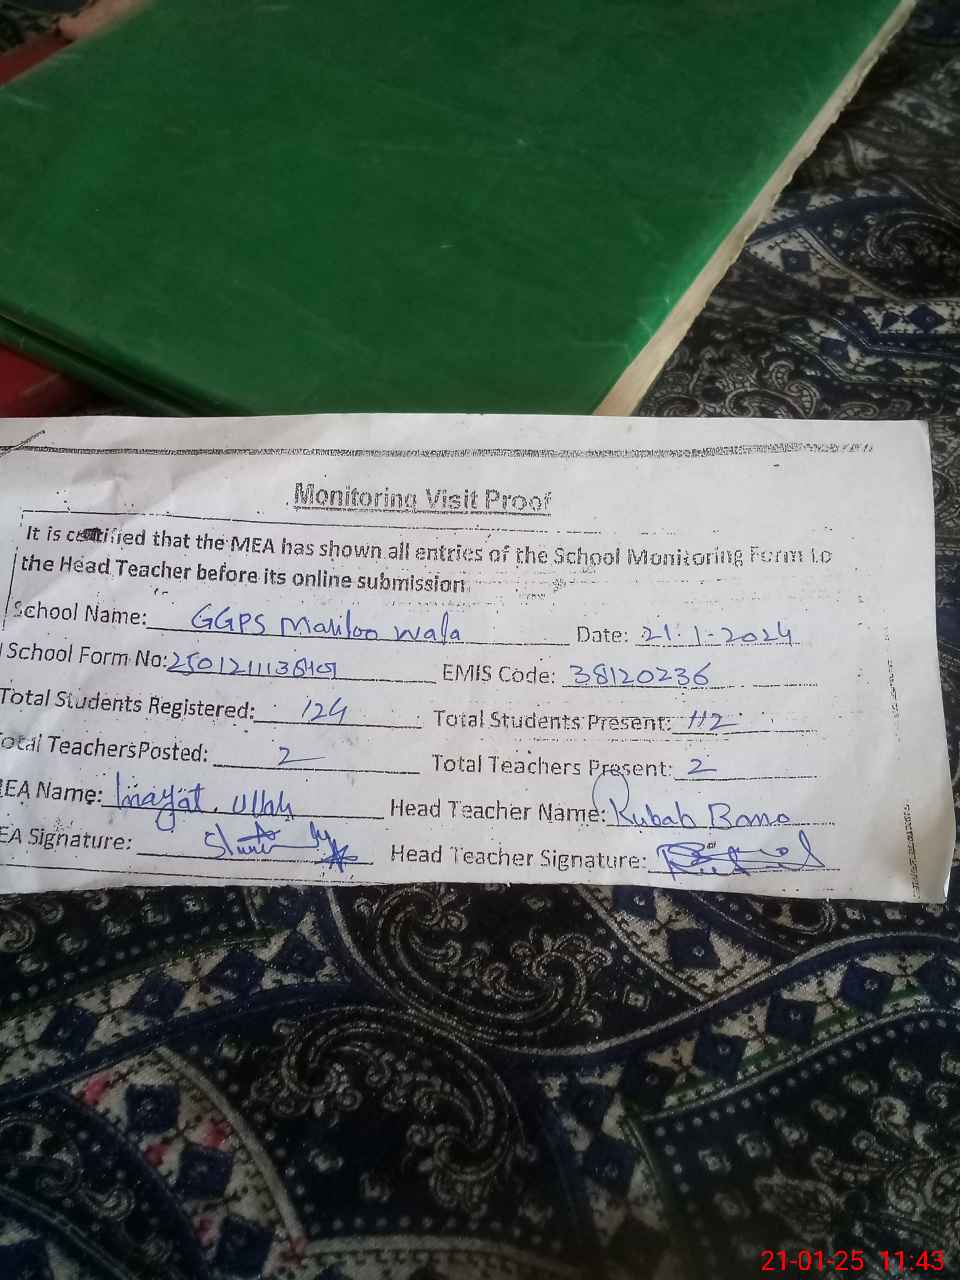 Monitoring Visit Proof
It is certified that the MEA has shown all entries of the School Monitoring Form to
the Head Teacher before its online submission
School Name: GGPS Mahloo wala Date: 21-1-2024
School Form No: EMIS Code: 38120236
Total Students Registered: 124 Total Students Present: 112
Total Teachers Posted: 2 Total Teachers Present: 2
EA Name: Inayat Ullah Head Teacher Name: Rubab Bano
EA Signature: Head Teacher Signature:
21-01-25 11:43